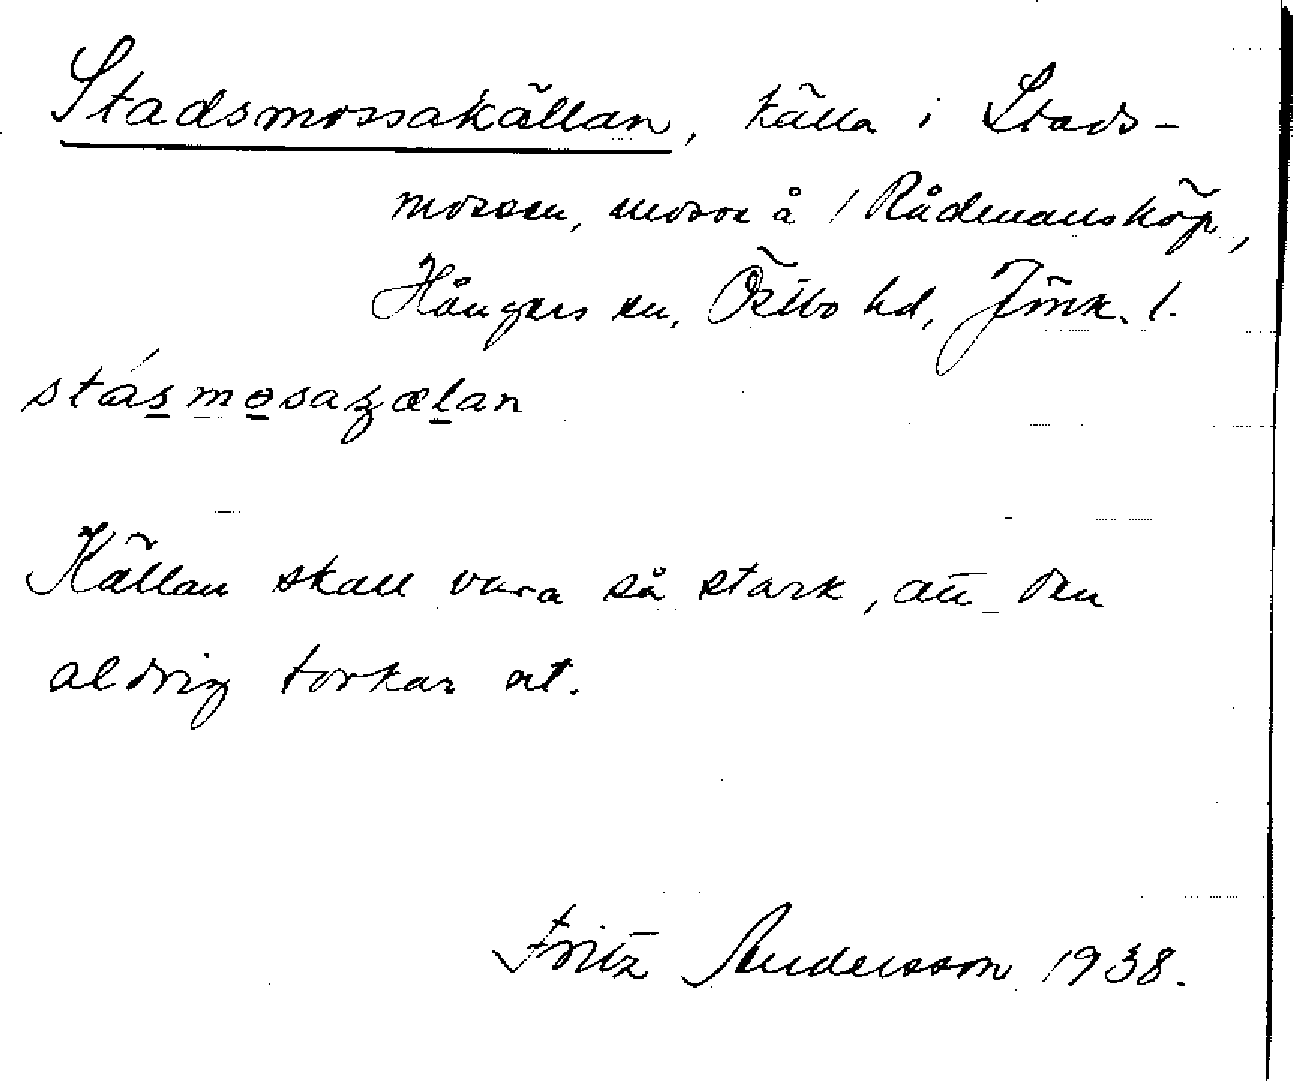 Stadsmossakällan, källa i Stads-
mossen, mosse å 1 Rådmansköp,
Hångers sn, Östbo hd, Jönk. l.
stásmosaʒælan
Källan skall vara så stark, att den
aldrig torkar ut.
Fritz Andersson 1938.